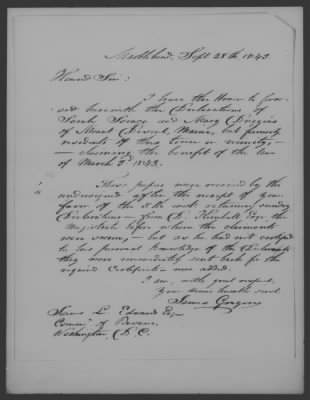 Marblehead, Sept 28th 1843.
Honored Sir:
I have the Honor to for-
ward herewith the Declarations of
Sarah and Mary
of Mount Desert, Maine, but formerly
residents of this town or vicinity,—
— claiming the benefit of the law
of March 3d 1843.
These papers were received by the
undersigned after the receipt of your
favor of the 5th inst returning sundry
Declarations — from D. Kimball Esqr, the
Magistrate before whom the claimants
were sworn; — but as he had not certified
to his personal knowledge of the
they were immediately sent back for the
required Certificate — now added.
I am, with great respect,
Your Honors humble servt.
James Gregory
James L. Edwards Esqr
Commr. of Pensions,
Washington, D. C.